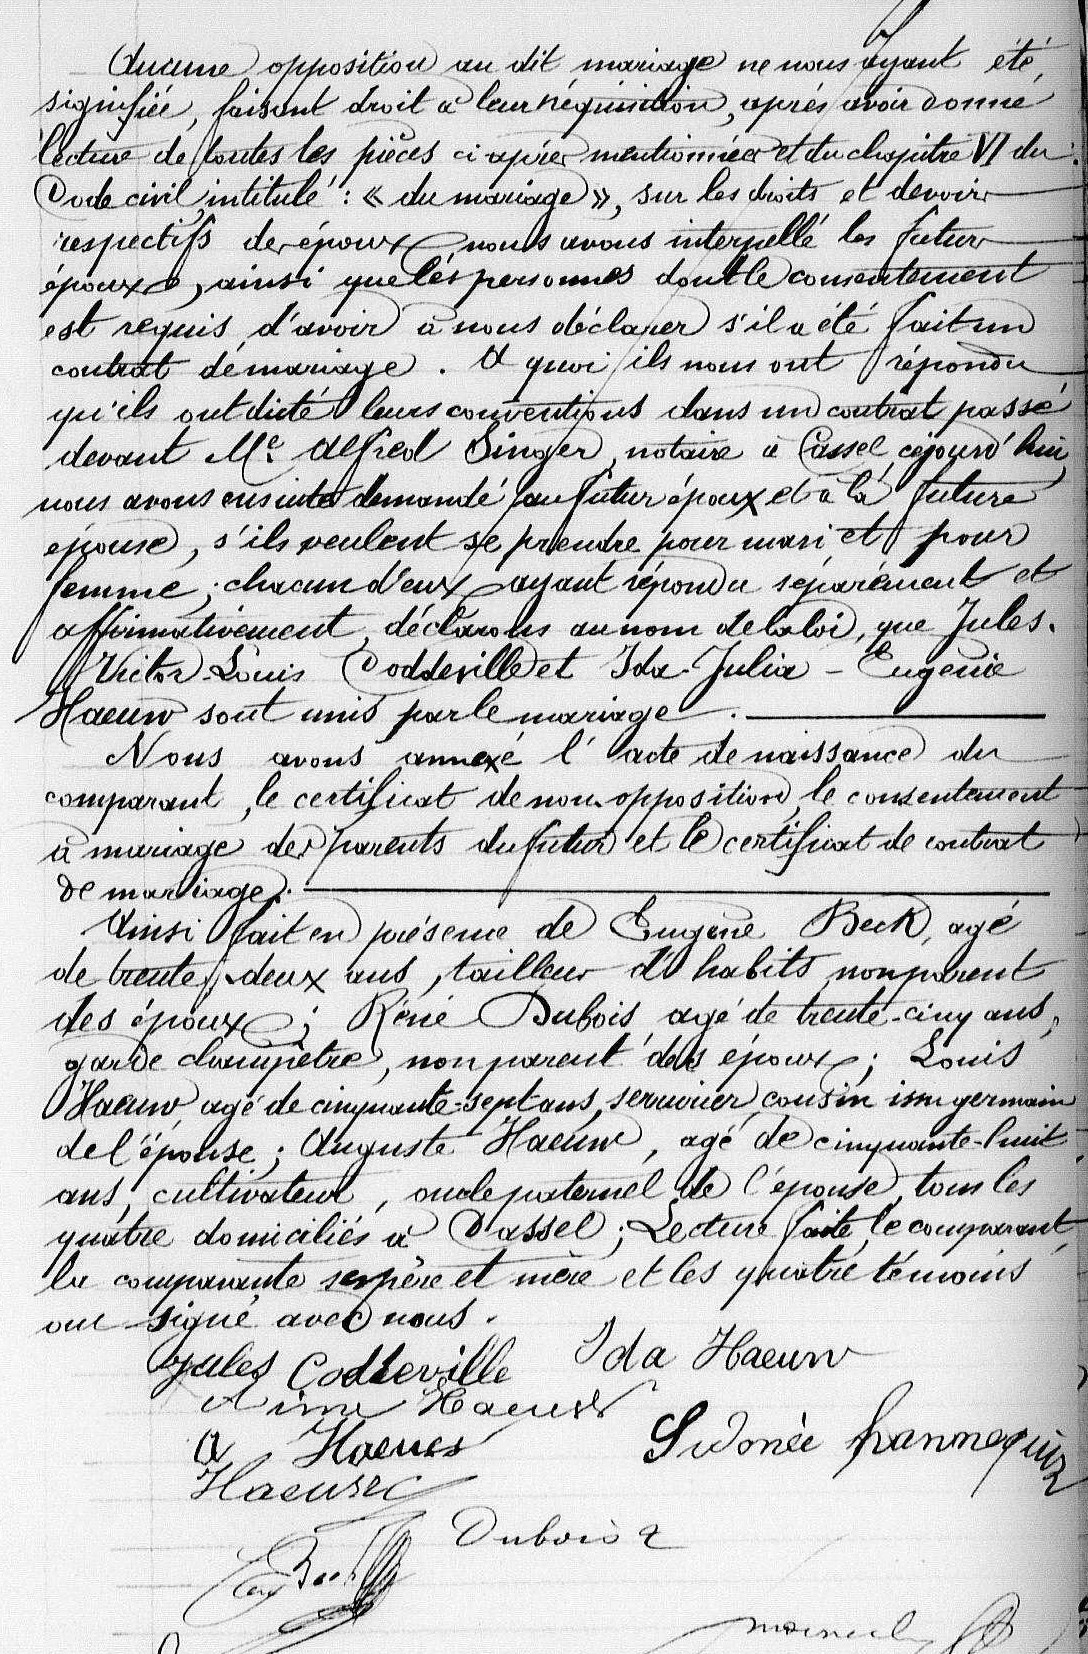 Aucune opposition au dit mariage ne nous ayant été
signifiée, faisant droit à leur réquisition, après avoir donné
lecture de toutes les pièces ci-après mentionnées et du chapitre VI du
Code civil, intitulé : « du mariage », sur les droits et devoirs
respectifs des époux nous avons interpellé les futurs
époux, ainsi que les personnes dont le consentement
est requis d'avoir à nous déclarer s'il a été fait un
contrat de mariage. A quoi ils nous ont répondu
qu'ils ont dicté leurs conventions dans un contrat passé
devant Me. Alfred Singer, notaire à Cassel cejourd'hui,
nous avons ensuite demandé au futur époux et à la future
épouse, s'ils veulent se prendre pour mari et pour
femme ; chacun d'eux ayant répondu séparément et
affirmativement, déclarons au nom de la loi, que Jules-
Victor-Louis Coddeville et Ida-Julia-Eugénie
Haeuw sont unis par le mariage.
Nous avons annexé l'acte de naissance du
comparant, le certificat de non-opposition, le consentement
à mariage des parents du futur et le certificat de contrat
de mariage.
Ainsi fait en présence de Eugène Beck, agé
de trente-deux ans, tailleur d'habits, non parent
des époux ; Réné Dubois agé de trente-cinq ans,
garde champêtre, non parent des époux ; Louis
Haeuw agé de cinquante-sept ans, serrurier, cousin issu germain
de l'épouse ; Auguste Haeuw, agé de cinquante-huit
ans, cultivateur, oncle paternel de l'épouse, tous les
quatre domiciliés à Cassel ; Lecture faite, le comparant,
la comparante ses père et mère et les quatre témoins
ont signé avec nous.
Jules Coddeville Ida Haeuw
Haeuw
A Haeuw Sidonée hannequin
Haeuw
Dubois